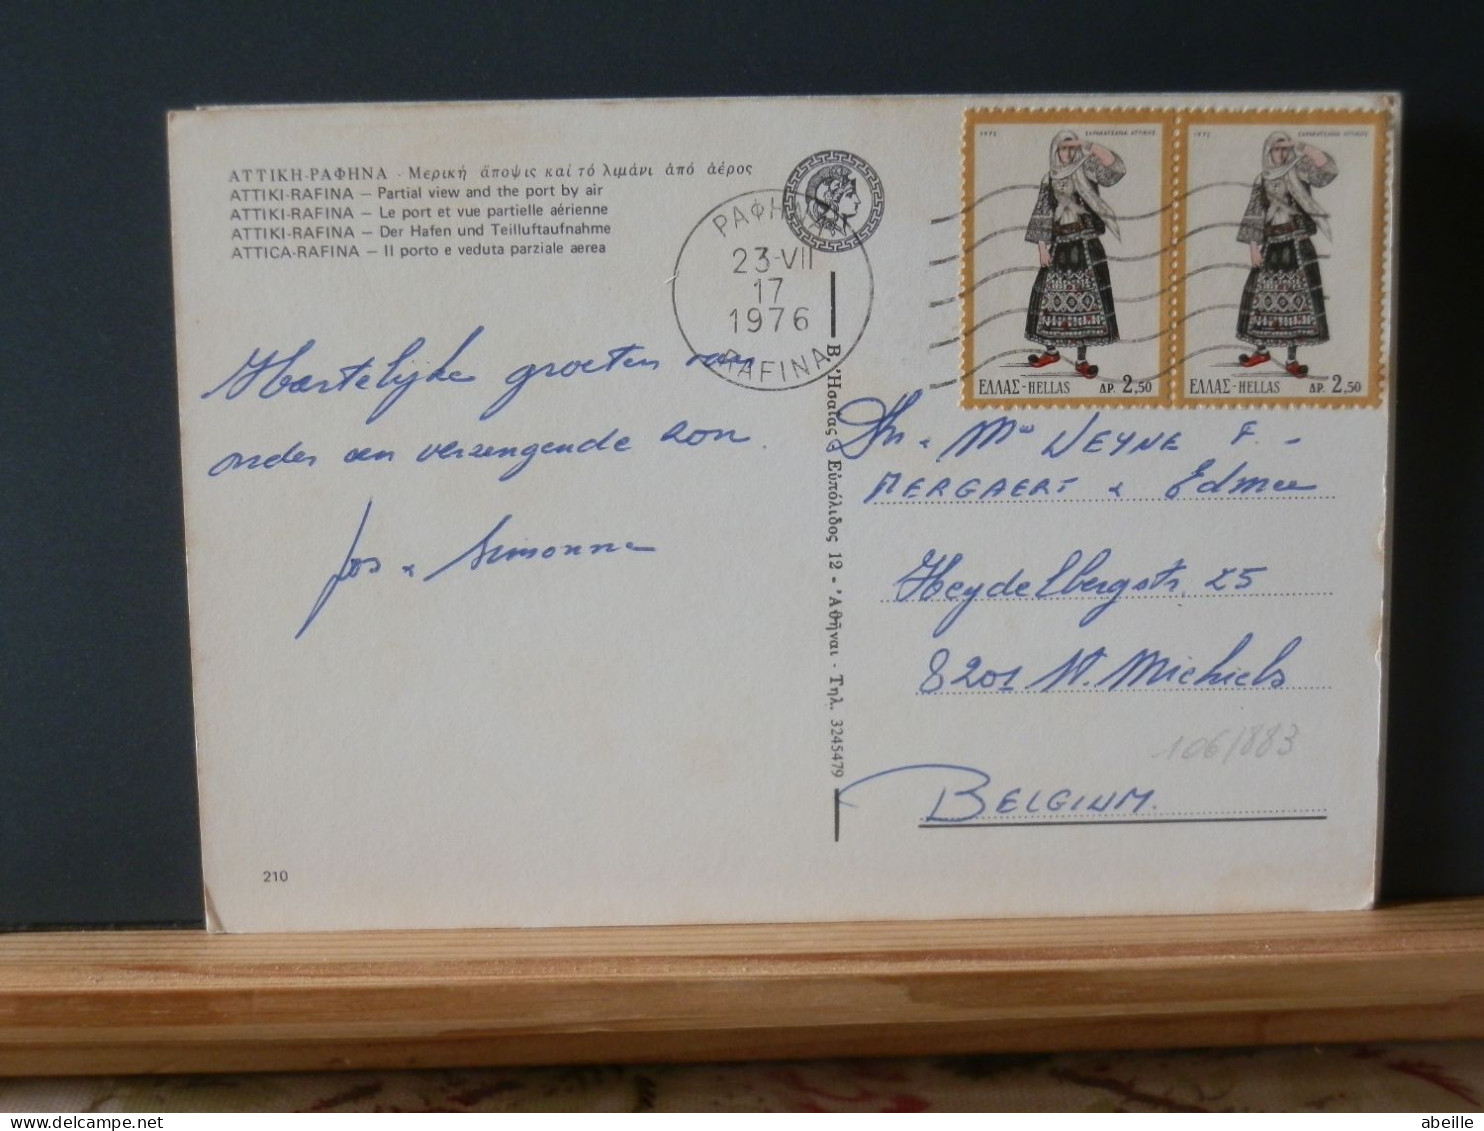 ΑΤΤΙΚΗ-ΡΑΦΗΝΑ - Μερική ἄποψις καί τό λιμάνι ἀπό ἀέρος
ATTIKI-RAFINA — Partial view and the port by air
ATTIKI-RAFINA — Le port et vue partielle aérienne
ATTIKI-RAFINA — Der Hafen und Teilluftaufnahme
ATTICA-RAFINA — Il porto e veduta parziale aerea
ΡΑΦΗΝ
23-VII
17
1976
RAFINA
1972 ΣΑΡΑΚΑΤΣΑΝΑ ΑΤΤΙΚΗΣ
ΕΛΛΑΣ-HELLAS ΔΡ. 2,50
1972 ΣΑΡΑΚΑΤΣΑΝΑ ΑΤΤΙΚΗΣ
ΕΛΛΑΣ-HELLAS ΔΡ. 2,50
Hartelijke groeten van
onder een verzengende zon.
Jos & Simonne
Β. Ἡσαΐας Εὐπόλιδος 12 - Ἀθῆναι - Τηλ. 3245479
Dhr & Mw WEYNE F. -
MERGAERT & Edmee
Heydelbergstr. 25
8201 St. Michiels
106/883
BELGIUM.
210
abeille